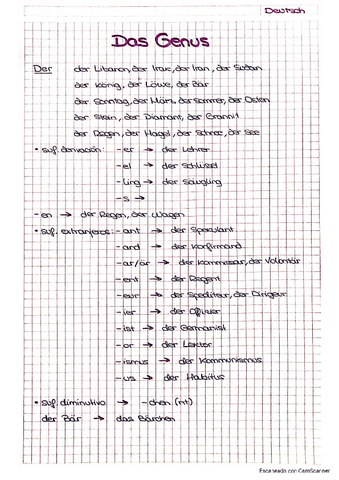 Deutsch
Das Genus
Der der Libanon, der Irak, der Iran, der Sudan
der König, der Löwe, der Bär
der Sonntag, der März, der Sommer, der Osten
der Stein, der Diamant, der Grannit
der Regen, der Hagel, der Schnee, der See
• suf. derivación: -er → der Lehrer
-el → der Schlüssel
-ling → der Säugling
-s →
-en → der Regen, der Wagen
• suf. extranjeros: -ant → der Spekulant
-and → der Konfirmand
-ar/är → der Kommissar, der Volontär
-ent → der Regent
-eur → der Spediteur, der Dirigeur
-ier → der Offizier
-ist → der Germanist
-or → der Lektor
-ismus → der Kommunismus
-us → der Habitus
• suf. diminutivo → -chen (nt)
der Bär → das Bärchen
Escaneado con CamScanner